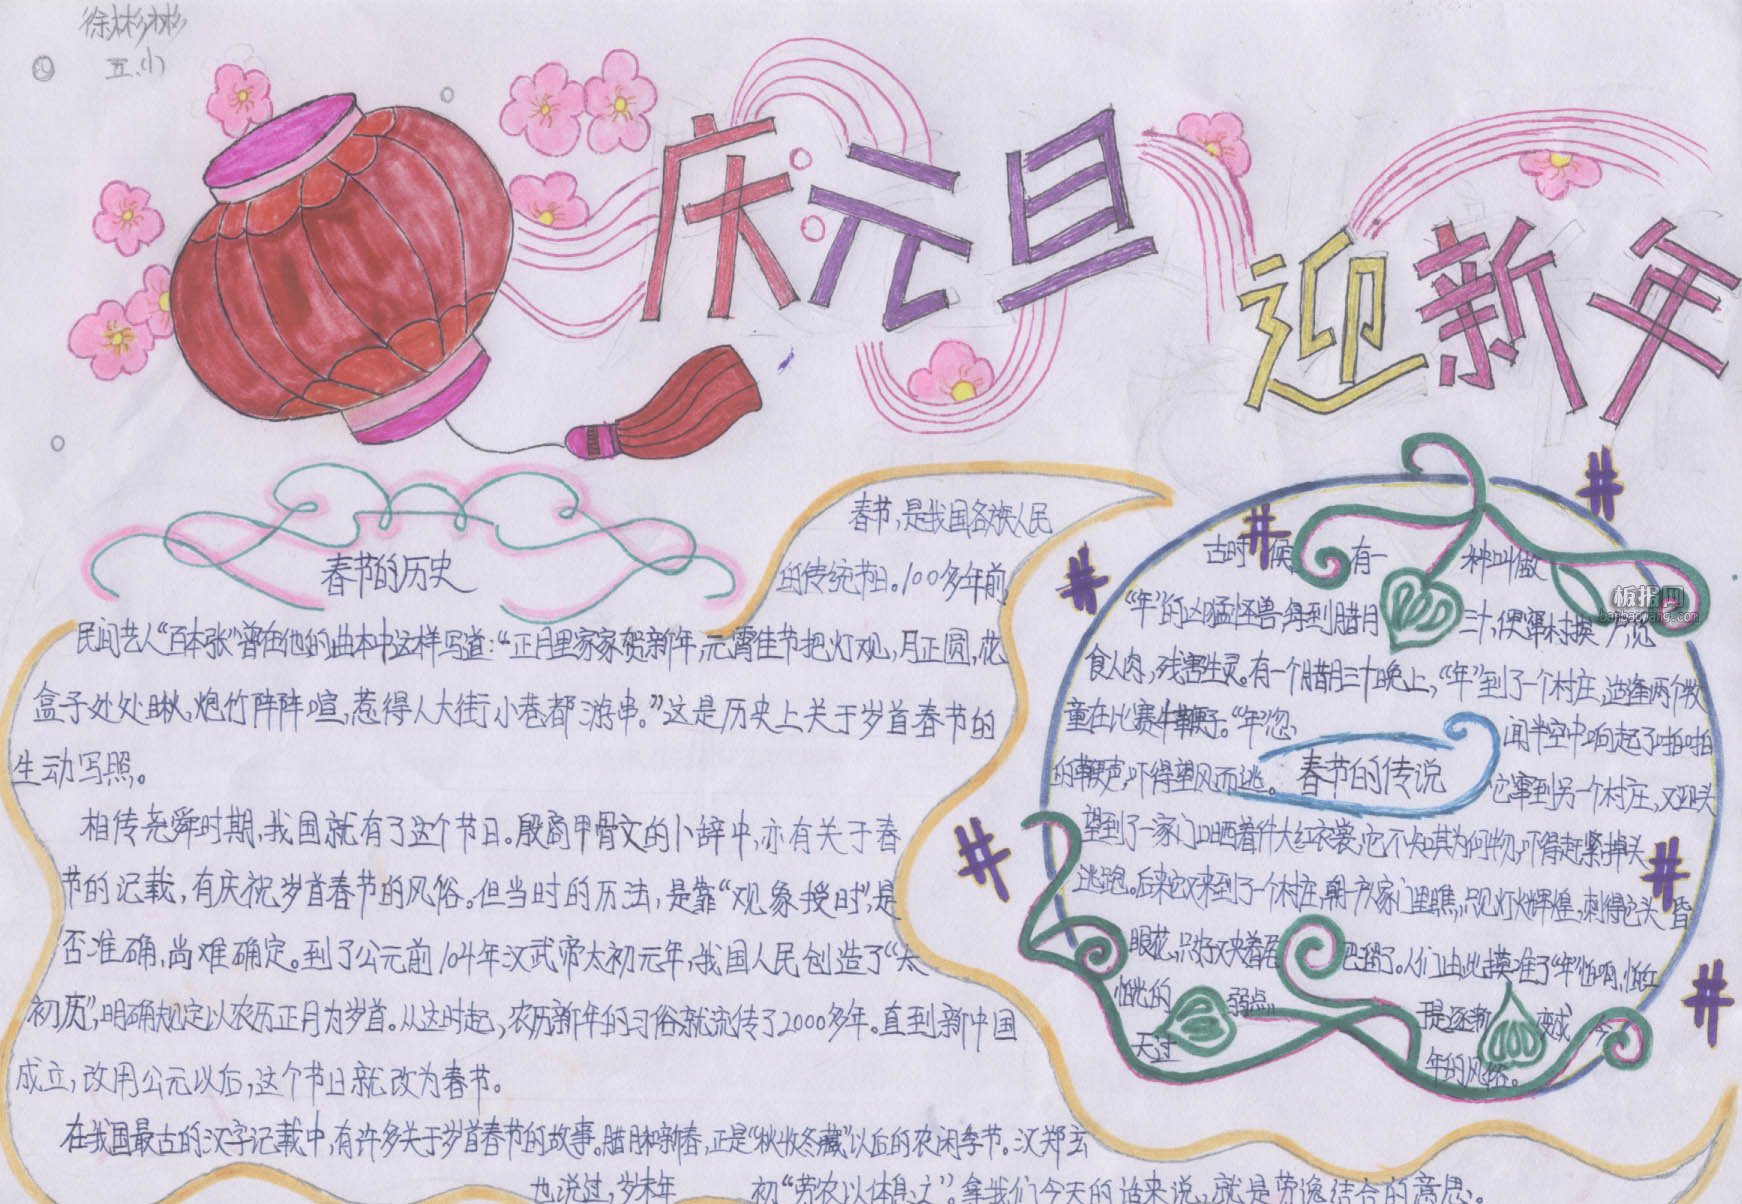 徐彬彬
五.(1)
庆元旦
迎新年
春节的历史
春节,是我国各族人民
的传统节日。100多年前
民间艺人“百本张”曾在他的曲本中这样写道:“正月里家家贺新年,元霄佳节把灯观,月正圆,花
盒子处处瞅,炮竹阵阵喧,惹得人大街小巷都游串。”这是历史上关于岁首春节的
生动写照。
相传尧舜时期,我国就有了这个节日。殷商甲骨文的卜辞中,亦有关于春
节的记载,有庆祝岁首春节的风俗。但当时的历法,是靠“观象授时”,是
否准确,尚难确定。到了公元前104年汉武帝太初元年,我国人民创造了“太
初历”,明确规定以农历正月为岁首。从这时起,农历新年的习俗就流传了2000多年。直到新中国
成立,改用公元以后,这个节日就改为春节。
在我国最古的汉字记载中,有许多关于岁首春节的故事。腊月和新春,正是“秋收冬藏”以后的农闲季节。汉郑玄
也说过,岁末年 初“劳农以休息之”。拿我们今天的话来说,就是劳逸结合的意思。
古时候 有一 种叫做
“年”的凶猛怪兽,每到腊月 三十,便窜村挨户,觅
食人肉,残害生灵。有一个腊月三十晚上,“年”到了一个村庄,适逢两个牧
童在比赛牛鞭子。“年”忽 闻半空中响起了啪啪
的鞭声,吓得望风而逃。 春节的传说 它窜到另一个村庄,又迎头
望到了一家门口晒着件大红衣裳,它不知其为何物,吓得赶紧掉头
逃跑。后来它又来到了一个村庄,朝一户人家门里瞧,只见灯火辉煌,刺得它头昏
眼花,只好又夹着尾 巴溜了。人们由此摸准了“年”怕响,怕红
怕光的 弱点 于是逐渐 变成 今
天过 年的风俗。
板报网
banbaowang.com